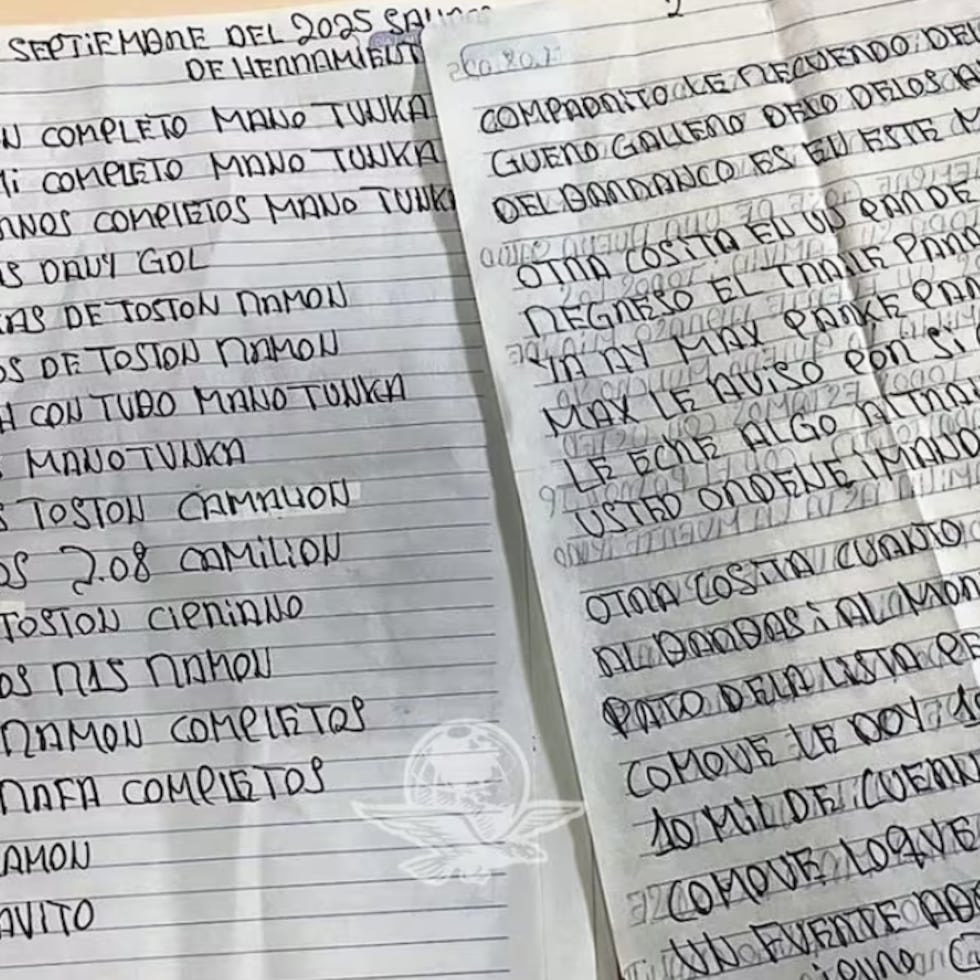 SEPTIEMBRE DEL 2025
DE HERRAMIENT
N COMPLETO MANO TUNKA
Mi COMPLETO MANO TUNKA
COMPLETOS MANO TUNK
S DANY GOL
AS DE TOSTON RAMON
OS DE TOSTON RAMON
CON TUDO MANO TUNKA
MANO TUNKA
S TOSTON CAMALION
OS 2.08 CAMILION
TOSTON CIPRIANO
OS R15 RAMON
RAMON COMPLETOS
RAFA COMPLETOS
AMON
AVITO
2
COMPADRITO LE RECUERDO DEL
GUERO GALLERO DELO DELOS
DEL BARRANCO ES EN ESTE
OTRA COSITA EN US RAN DE
REGRESO EL TRAILE PARA
YA AY MAX PARKE PAR
MAX LE AVISO POR SI
LE ECHE ALGO ATRA
USTED ORDENE I MAND
OTRA COSITA CUANTO
AL BARBAS i AL MOR
PATO DELA LISTA
COMOVE LE DOY 1
10 MIL DE CUERN
COMOVE LOQVE
UN FUERTE AB